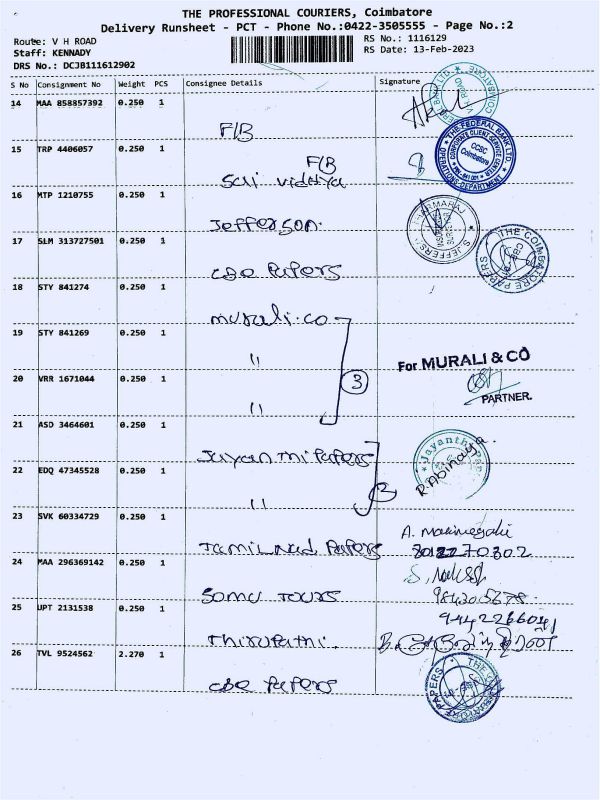 THE PROFESSIONAL COURIERS, Coimbatore
Delivery Runsheet - PCT - Phone No.:0422-3505555 - Page No.:2
Route: V H ROAD
RS No.: 1116129
Staff: KENNADY
RS Date: 13-Feb-2023
DRS No.: DCJB111612902
S No Consignment No Weight PCS Consignee Details Signature
14 MAA 858857392 0.250 1
F/B
15 TRP 4406057 0.250 1
F/B
THE FEDERAL BANK LTD.
CORPORATE CLIENT SERVICE CENTER
CCSC
Coimbatore
OPERATIONS DEPARTMENT
Sai Vidhya
16 MTP 1210755 0.250 1
Jefferson.
17 SLM 313727501 0.250 1
THE COIMBATORE PAPERS
cbe Papers
18 STY 841274 0.250 1
murali.co
19 STY 841269 0.250 1
"
3
For MURALI & CO
PARTNER.
20 VRR 1671044 0.250 1
"
21 ASD 3464601 0.250 1
Jayanthi Papers
R. Abinaya.
22 EDQ 47345528 0.250 1
"
23 SVK 60334729 0.250 1
Tamil Nad Papers
24 MAA 296369142 0.250 1
Somu Tours
25 UPT 2131538 0.250 1
Thirupathi.
26 TVL 9524562 2.270 1
cbe Papers